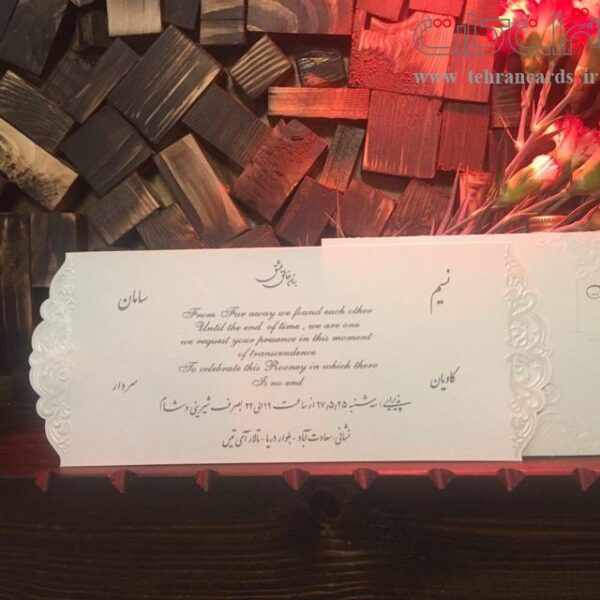 www.tehrancards.ir
بنام خالق عشق
نسیم
سامان
From Far away we found each other
Until the end of time , we are one
we request your presence in this moment
of transcendence
To celebrate this Rooney in which there
Is no end
کاویان
سردار
پذیرایی : سه شنبه ۹۷٫۵٫۲۵ از ساعت ۱۹ الی ۲۲ بصرف شیرینی و شام
نشانی: سعادت آباد - بلوار دریا - تالار آمی تیس